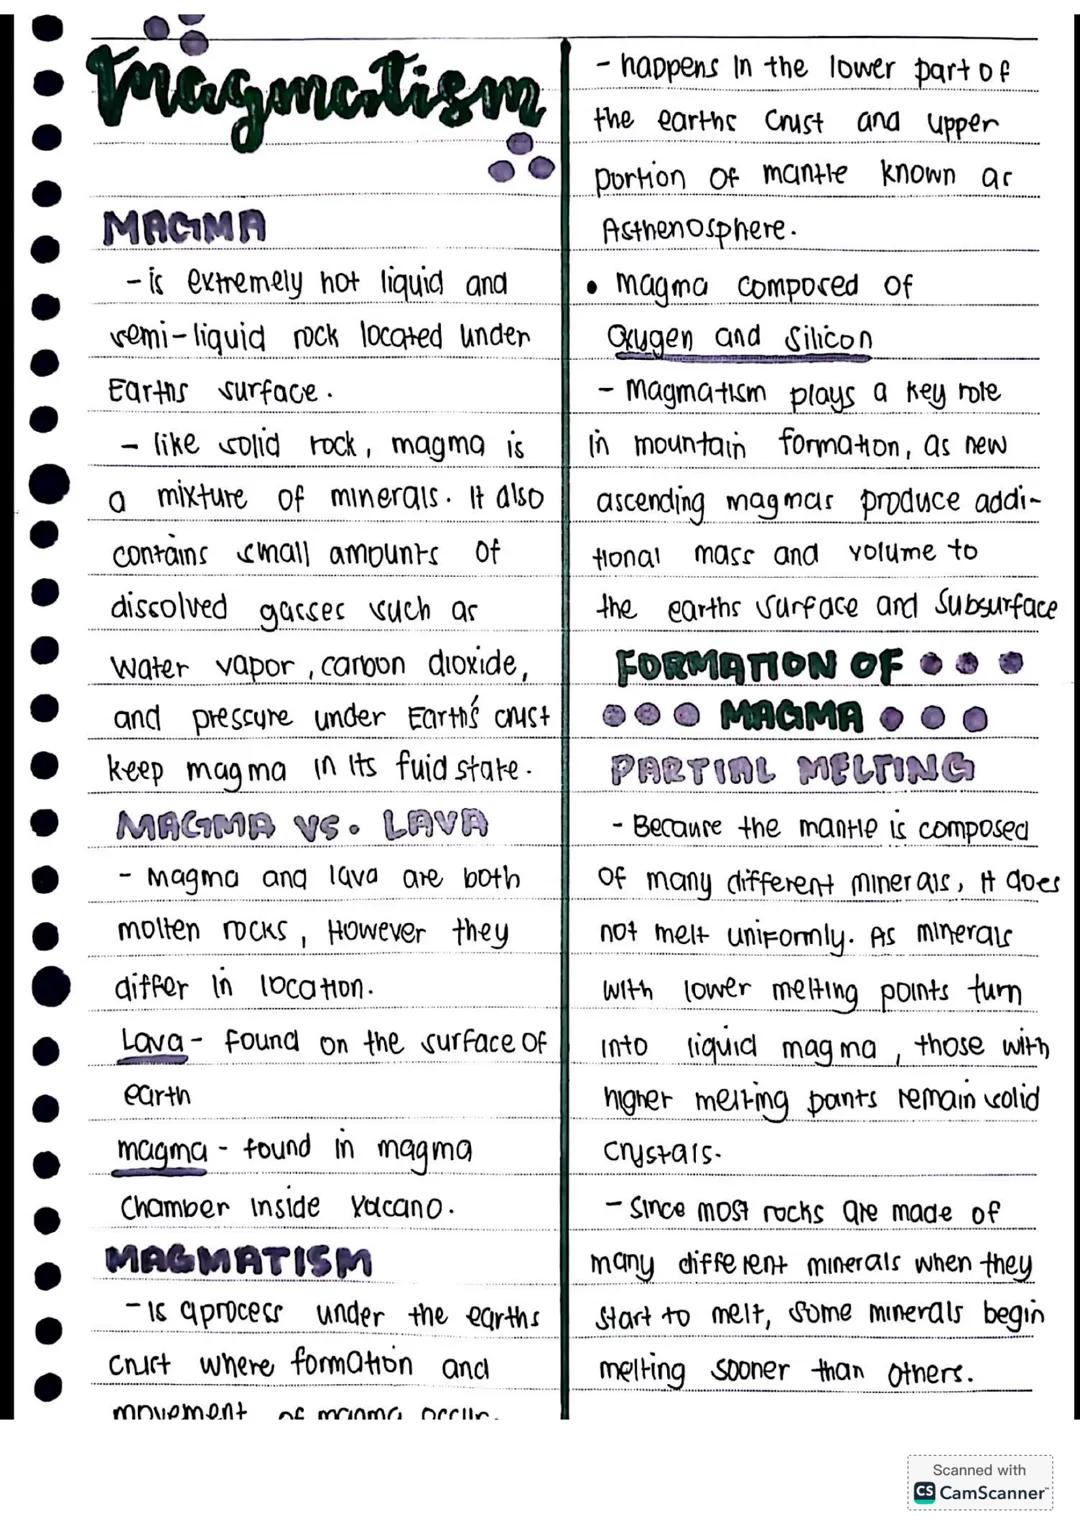 Magmatism
MAGMA
- is extremely hot liquid and
semi-liquid rock located under
Earths surface.
- like solid rock, magma is
a mixture of minerals. It also
contains small amounts of
dissolved gasses such as
water vapor, carbon dioxide,
and pressure under Earth's crust
keep magma in its fuid state.
MAGMA VS. LAVA
- Magma and lava are both
molten rocks, However they
differ in location.
Lava - found on the surface of
earth
magma - found in magma
chamber inside Volcano.
MAGMATISM
- Is a process under the earths
crust where formation and
movement of magma occur.
- happens in the lower part of
the earths crust and upper
portion of mantle known as
Asthenosphere.
• magma composed of
Oxygen and Silicon
- Magmatism plays a key role
in mountain formation, as new
ascending magmas produce addi-
tional mass and volume to
the earths surface and subsurface
FORMATION OF
MAGMA
PARTIAL MELTING
- Because the mantle is composed
of many different minerals, it does
not melt uniformly. As minerals
with lower melting points turn
into liquid magma, those with
higher melting points remain solid
crystals.
- Since most rocks are made of
many different minerals when they
start to melt, some minerals begin
melting sooner than others.
Scanned with
CS CamScanner